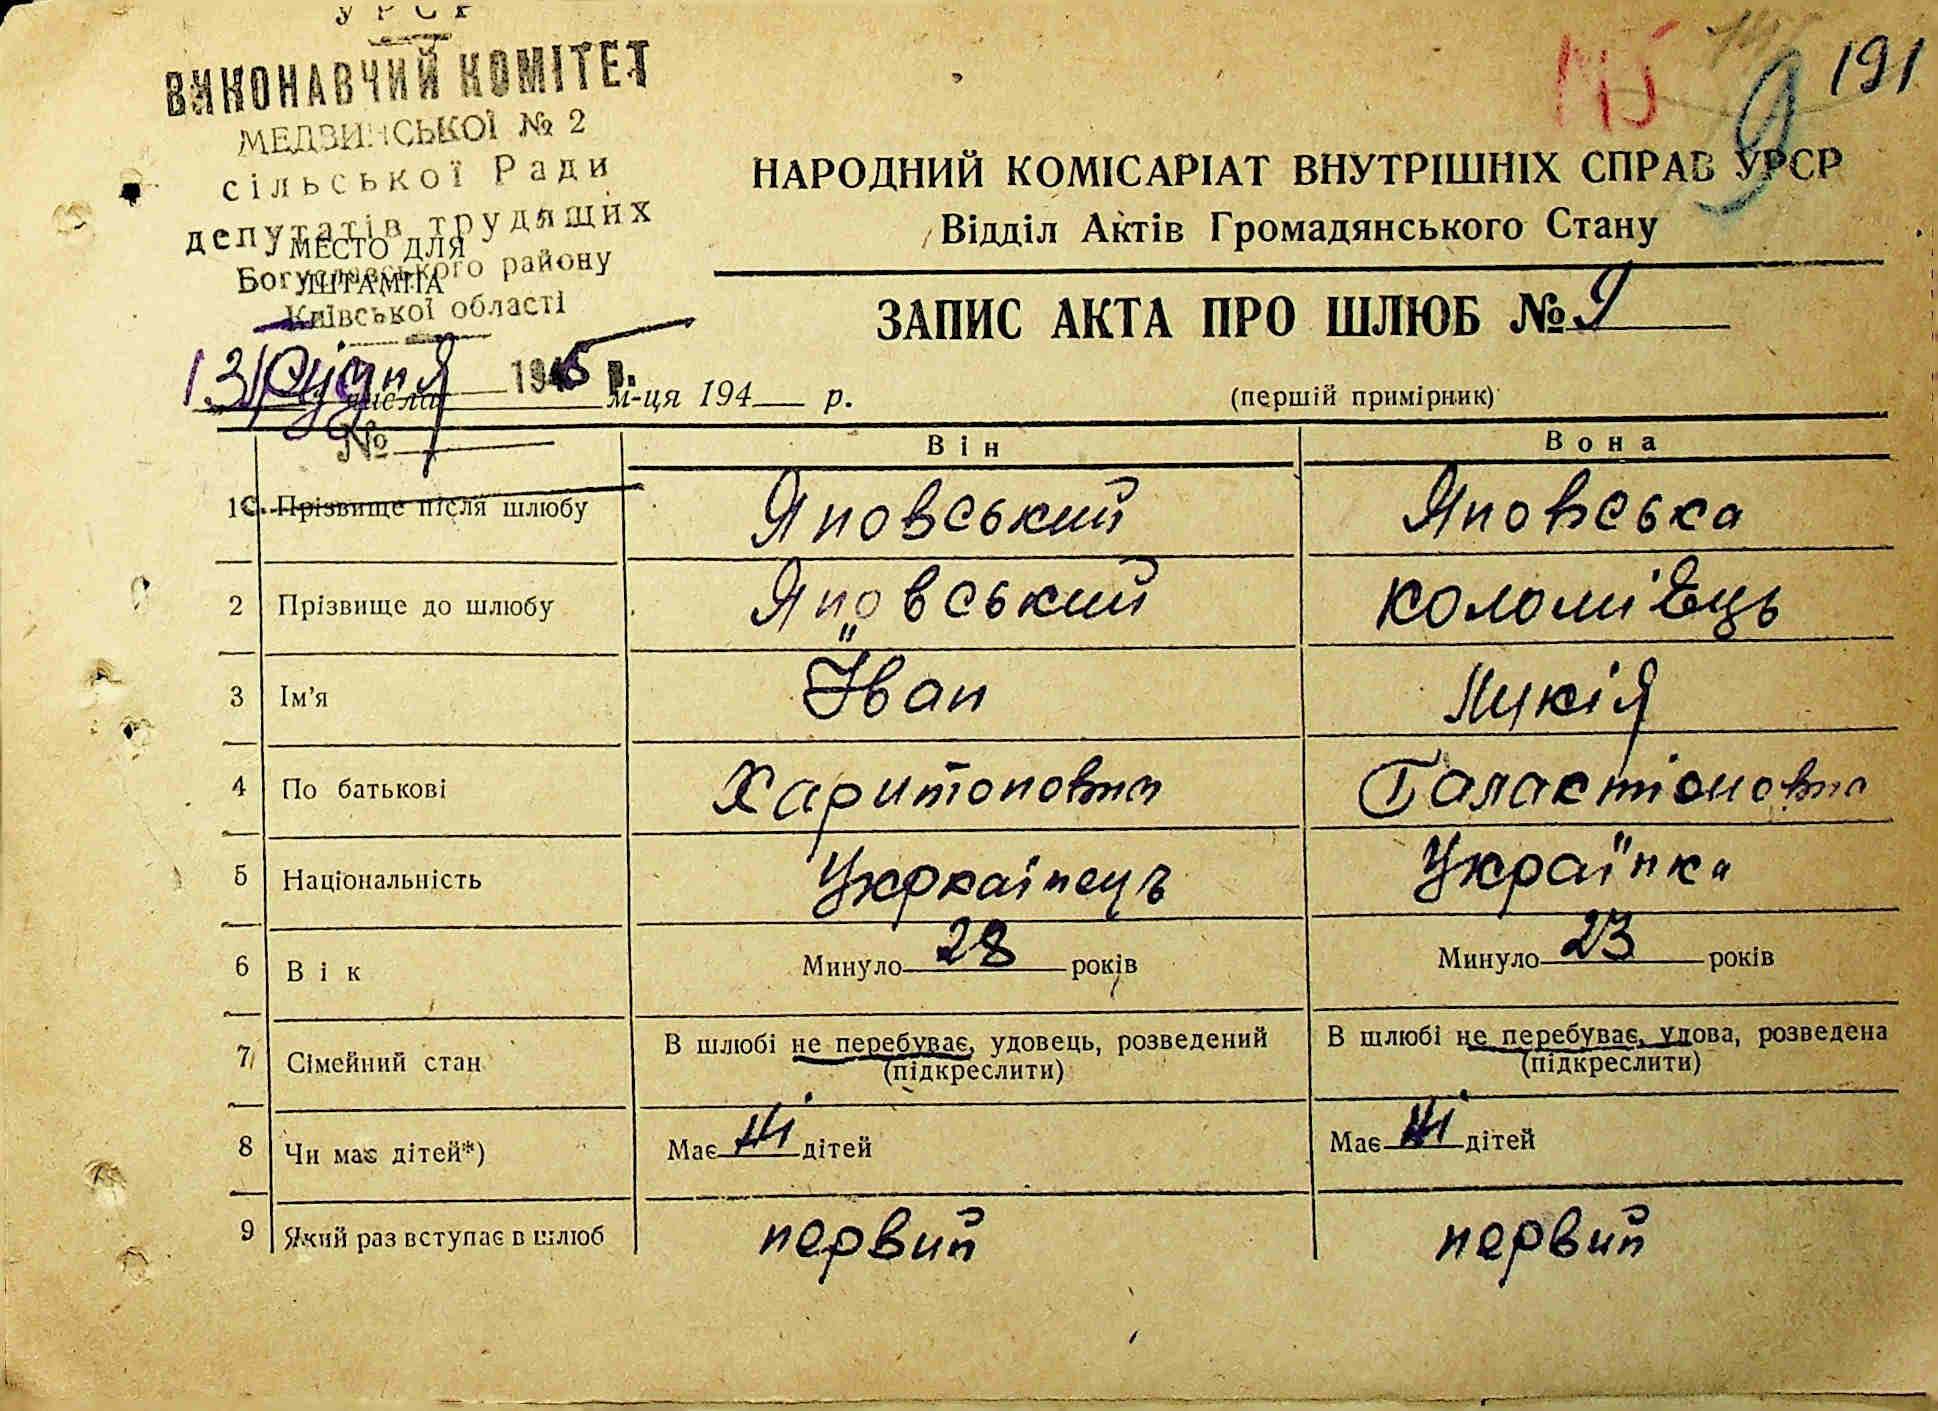 УРСР
ВИКОНАВЧИЙ КОМІТЕТ
МЕДВИНСЬКОЇ № 2
сільської Ради
депутатів трудящих
МЕСТО ДЛЯ
Богуславського району
ШТАМПА
Київської області
191
9
НАРОДНИЙ КОМІСАРІАТ ВНУТРІШНІХ СПРАВ УРСР
Відділ Актів Громадянського Стану
ЗАПИС АКТА ПРО ШЛЮБ № 9
13 Грудня 1945 р.
числа м-ця 194 р. (першій примірник)
№
Він Вона
1 Прізвище після шлюбу Яновський Яновська
2 Прізвище до шлюбу Яновський Коломієць
3 Ім'я Іван Лукія
4 По батькові Харитонович Галактіоновна
5 Національність Українець Українка
6 Вік Минуло 28 років Минуло 23 років
7 Сімейний стан В шлюбі не перебуває, удовець, розведений В шлюбі не перебуває, удова, розведена
(підкреслити) (підкреслити)
8 Чи має дітей*) Має ні дітей Має ні дітей
9 Який раз вступає в шлюб первий первий